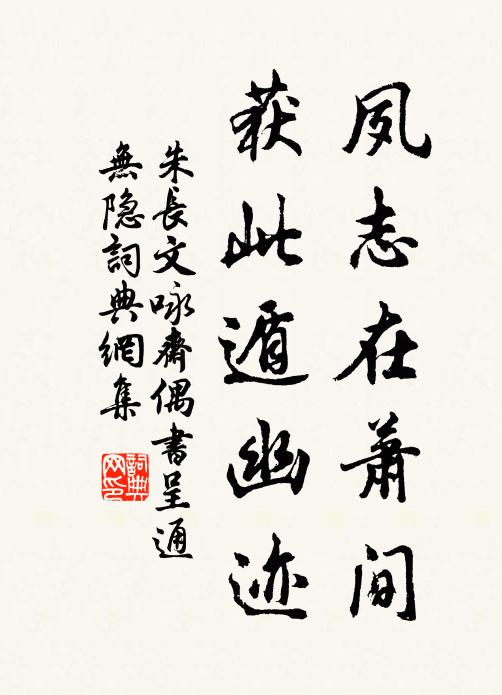 夙志在萧间
获此遁幽迹
朱長文咏齋偶書呈通
無隐詞典網集
詞典网印